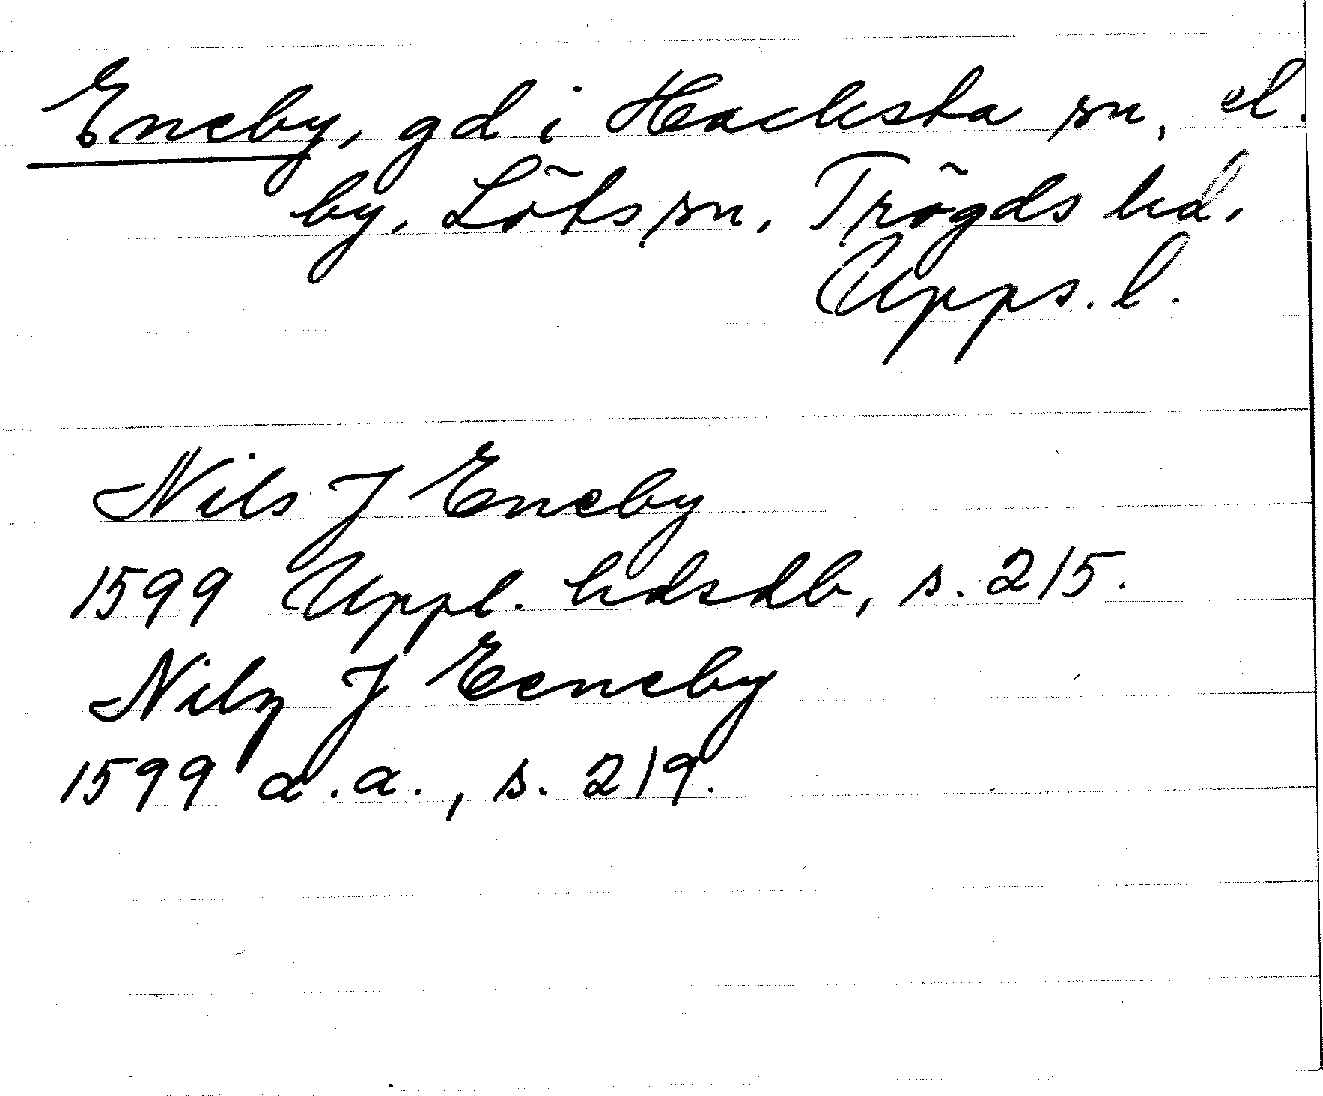 Eneby, gd i Hacksta sn, el.
by, Löts sn, Trögds hd,
Upps. l.
Nils J Eneby
1599 Uppl. hdsdb, s. 215.
Nilz J Eeneby
1599 a.a., s. 219.